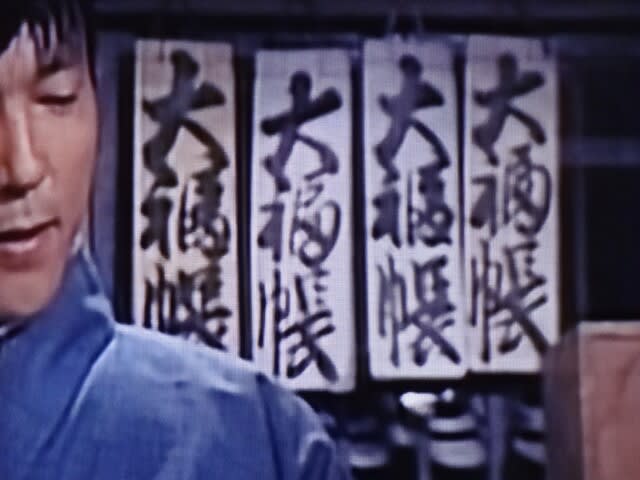 大福帳
大福帳
大福帳
大福帳